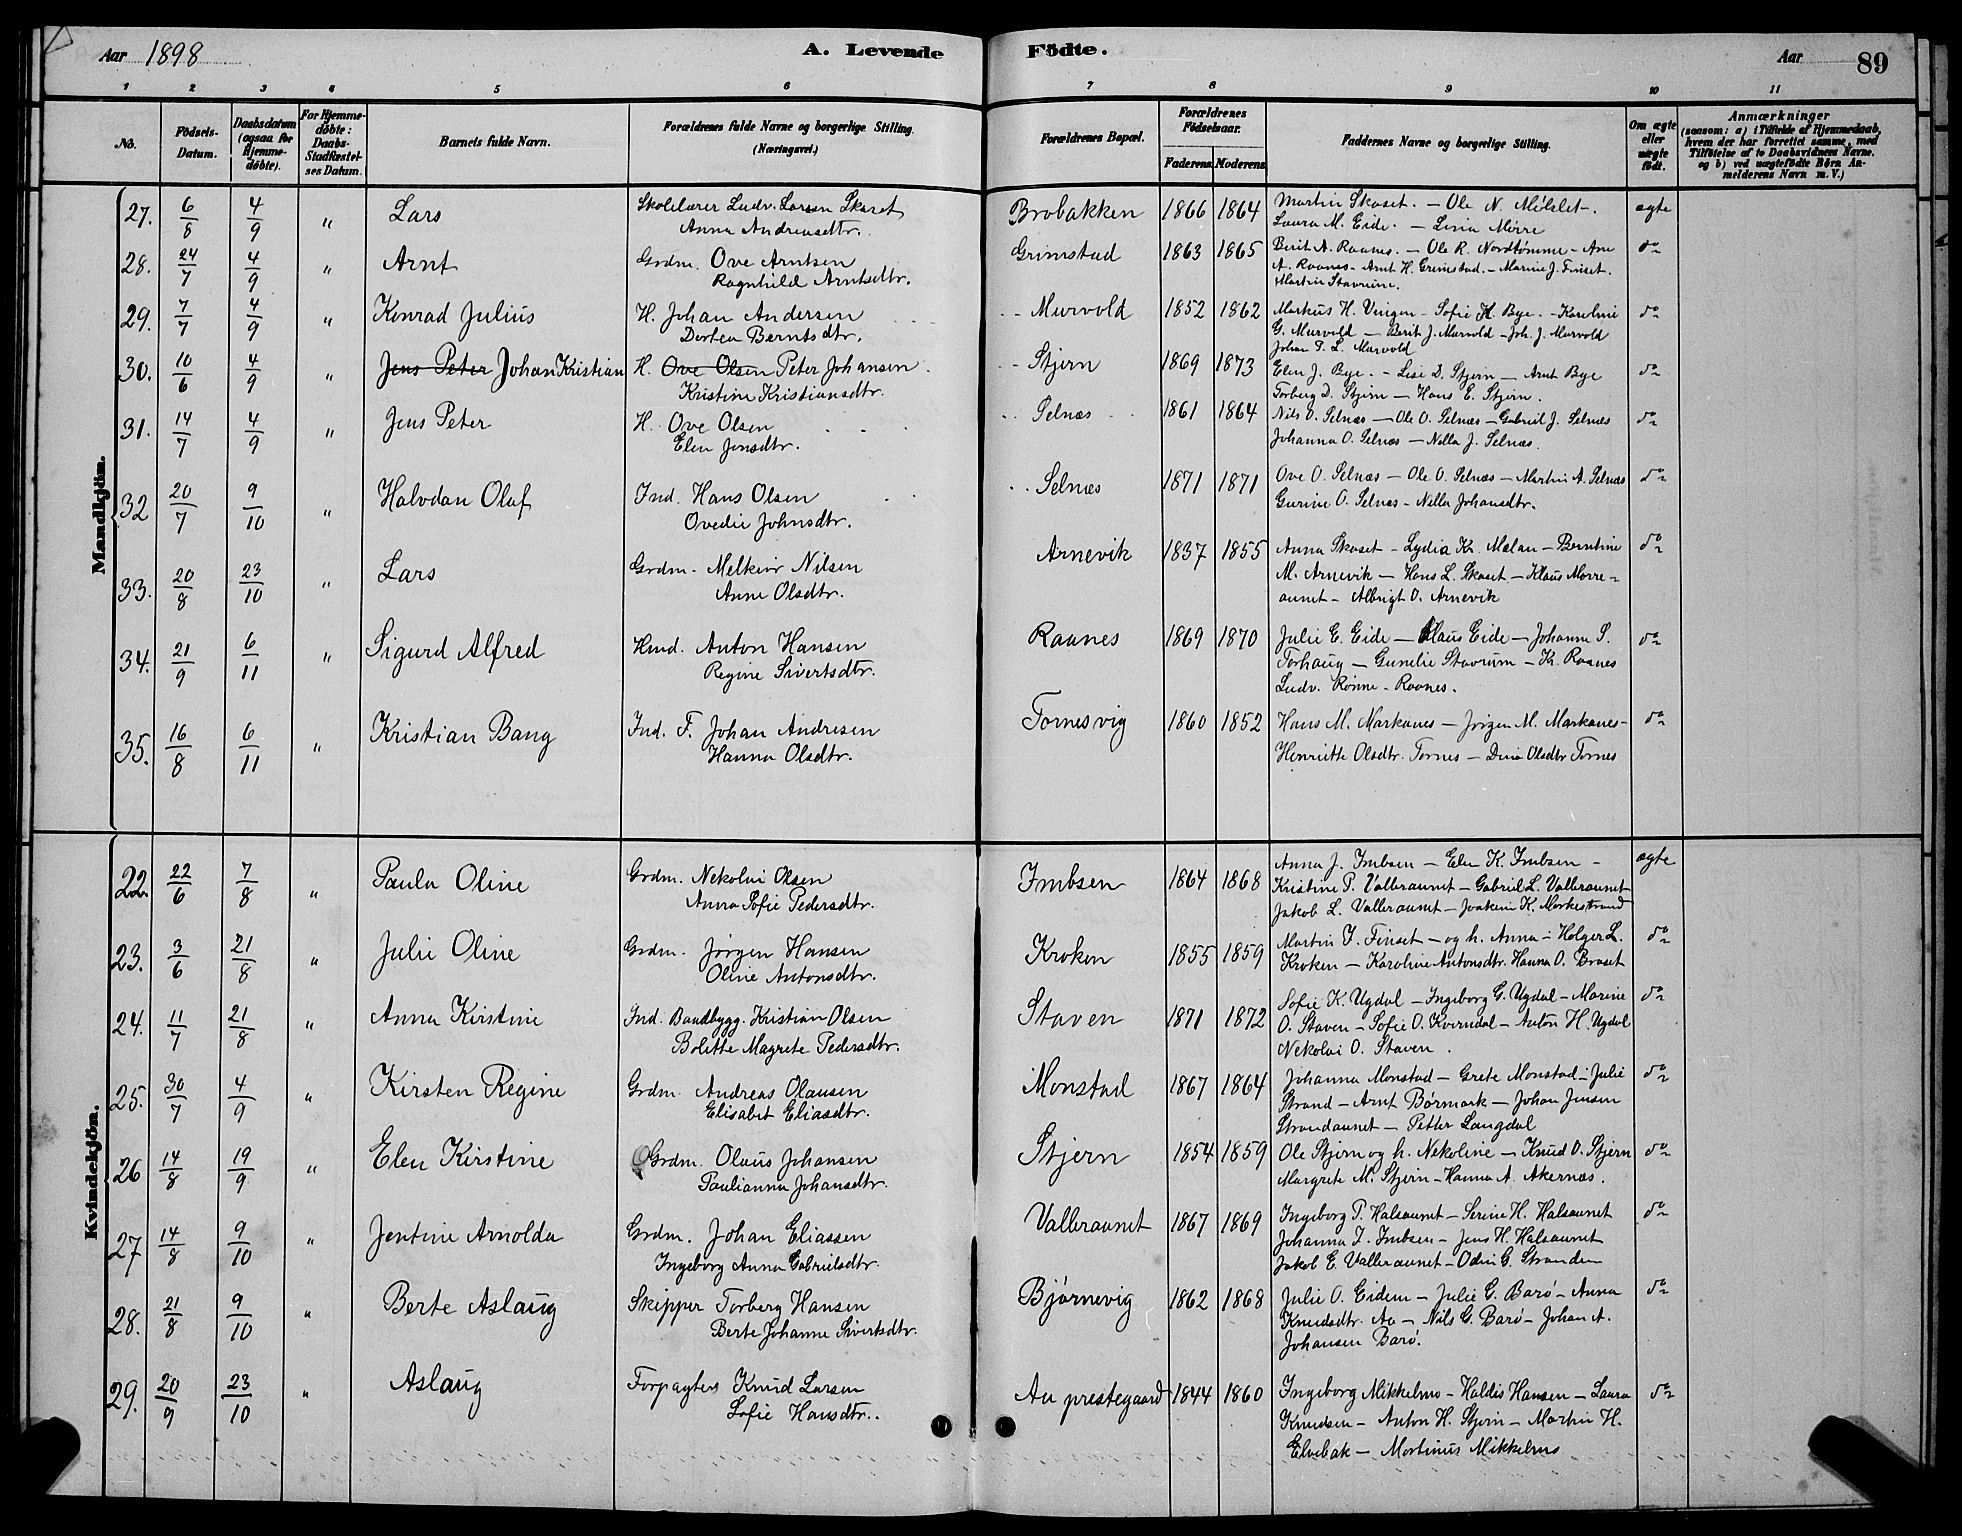 Aar 1898 A. Levende Födte. Aar 89
1 2 3 4 5 6 7 8 9 10 11
No. Födsels-Datum. Daabsdatum (ogsaa for Hjemmedöbte). For Hjemmedöbte: Daabs-Stadfæstelses Datum. Barnets fulde Navn. Forældrenes fulde Navne og borgerlige Stilling. (Næringsvei.) Forældrenes Bopæl. Forældrenes Födselsaar. Faderens. Moderens. Faddernes Navne og borgerlige Stilling. Om ægte eller uægte födt. Anmærkninger (saasom: a) i Tilfælde af Hjemmedaab, hvem der har forrettet samme, med Tilföielse af to Daabsvidners Navne, og b) ved uægtefödte Börn Anmelderens Navn m. V.)
Mandkjön.
27. 6/8 4/9 " Lars Skolelærer Ludv. Larsen Skaset Brobakken 1866 1864 Martin Skaset. – Ole N. Mölslet. ægte
Anna Andreasdtr. Laura M. Eide. – Lina Mörre
28. 24/7 4/9 " Arnt Grdm. Ove Arntsen Grimstad 1863 1865 Berit A. Raanes. – Ole R. Nordtömme – Ane do
Ragnhild Arntsdtr. A. Raanes – Arnt H. Grimstad. – Marine J. Finset.
Martin Stavrum.
29. 7/7 4/9 " Konrad Julius H. Johan Andersen Murvold 1852 1862 Markus H. Vingen – Sofie H. Bye. – Karoline do
Dortea Berntsdtr. G. Murvold – Berit J. Murvold – Joh. J. Murvold
Johan P. L. Murvold
30. 10/6 4/9 " Jens Peter Johan Kristian H. Ove Olsen Peter Johansen Stjern 1869 1873 Elen J. Bye. – Lisi D. Stjern – Arnt Bye do
Kristine Kristiansdtr. Torberg D. Stjern – Hans E. Stjern.
31. 14/7 4/9 " Jens Peter H. Ove Olsen Selnæs 1861 1864 Nils O. Selnæs – Ole O. Selnæs – Gabriel J. Selnæs do
Elen Jensdtr. Johanna O. Selnæs – Nella J. Selnæs.
32 20/7 9/10 " Halvdan Olaf Ind. Hans Olsen Selnæs 1871 1871 Ove O. Selnæs – Ole O. Selnæs – Martin A. Selnæs do
Ovedie Johnsdtr. Gurine O. Selnæs – Nella Johansdtr.
33. 20/8 23/10 " Lars Grdm. Melkior Nilsen Arnevik 1837 1855 Anna Skaset – Lydia Kr. Mælan – Berntine do
Anne Olsdtr. M. Arnevik – Hans L. Skaset – Klaus Morre-
aunet – Albrigt O. Arnevik
34. 21/9 6/11 " Sigurd Alfred Hmd. Anton Hansen Raanes 1869 1870 Julie E. Eide – Klaus Eide – Johanna S. do
Regine Sivertsdtr. Torhaug – Gunelie Stavrum – Kr. Raanes
Ludv. Rönne – Raanes.
35. 16/8 6/11 " Kristian Bang Ind. F. Johan Andresen Tornesvig 1860 1852 Hans M. Markanes – Jörgen M. Markanes – do
Hanna Olsdtr. Henriette Olsdtr. Tornes – Dina Olsdtr Tornes
Kvindekjön.
22. 22/6 7/8 " Paula Oline Grdm. Nekolai Olsen Imbsen 1864 1868 Anna J. Imbsen – Elen K. Imbsen – ægte
Anna Sofie Pedersdtr. Kristine P. Valleraunet – Gabriel L. Valleraunet
Jakob L. Valleraunet – Joakim K. Morkestrand
23. 3/6 21/8 " Julie Oline Grdm. Jörgen Hansen Kroken 1855 1859 Martin I. Finset – og h. Anna – Holger L. do
Oline Antonsdtr. Kroken – Karoline Antonsdtr. Hanna O. Braset
24. 11/7 21/8 " Anna Kirstine Ind. Baadbygg. Kristian Olsen Staven 1871 1872 Sofie K. Ugdal – Ingeborg G. Ugdal – Marine do
Bolette Magrete Pedersdtr. O. Staven – Sofie O. Kverndal – Anton H. Ugdal
Nekolai O. Staven.
25. 30/7 4/9 " Kirsten Regine Grdm. Andreas Olausen Monstad 1867 1864 Johanna Monstad – Grete Monstad – Julie do
Elisabet Eliasdtr. Strand – Arnt Börmark – Johan Jensen
Strandaunet – Petter Langdal
26 14/8 19/9 " Elen Kirstine Grdm. Olaus Johansen Stjern 1854 1859 Ole Stjern og h. Nekoline – Knud O. Stjern do
Paulianna Johansdtr. Margrete M. Stjern – Hanna A. Akernæs.
27 14/8 9/10 " Jentine Arnolda Grdm. Johan Eliassen Valleraunet 1867 1869 Ingeborg P. Halsaunet – Serine H. Halsaunet do
Ingeborg Anna Gabrielsdtr. Johanna I. Imbsen – Jens H. Halsaunet
Jakob E. Valleraunet – Odin G. Stranden
28. 21/8 9/10 " Berte Aslaug Skipper Torberg Hansen Bjørnevig 1862 1868 Julie O. Eidem – Julie G. Barø – Anna do
Berte Johanne Sivertsdtr. Knudsdtr. Aa – Nils G. Barø – Johan A.
Johansen Barø.
29. 20/9 23/10 " Aslaug Forpagters Knud Larsen Aa prestegaard 1844 1860 Ingeborg Mikkelmo – Haldis Hansen – Laura do
Sofie Hansdtr. Knudsen – Anton H. Stjern – Martin H.
Elvebak – Martinus Mikkelmo